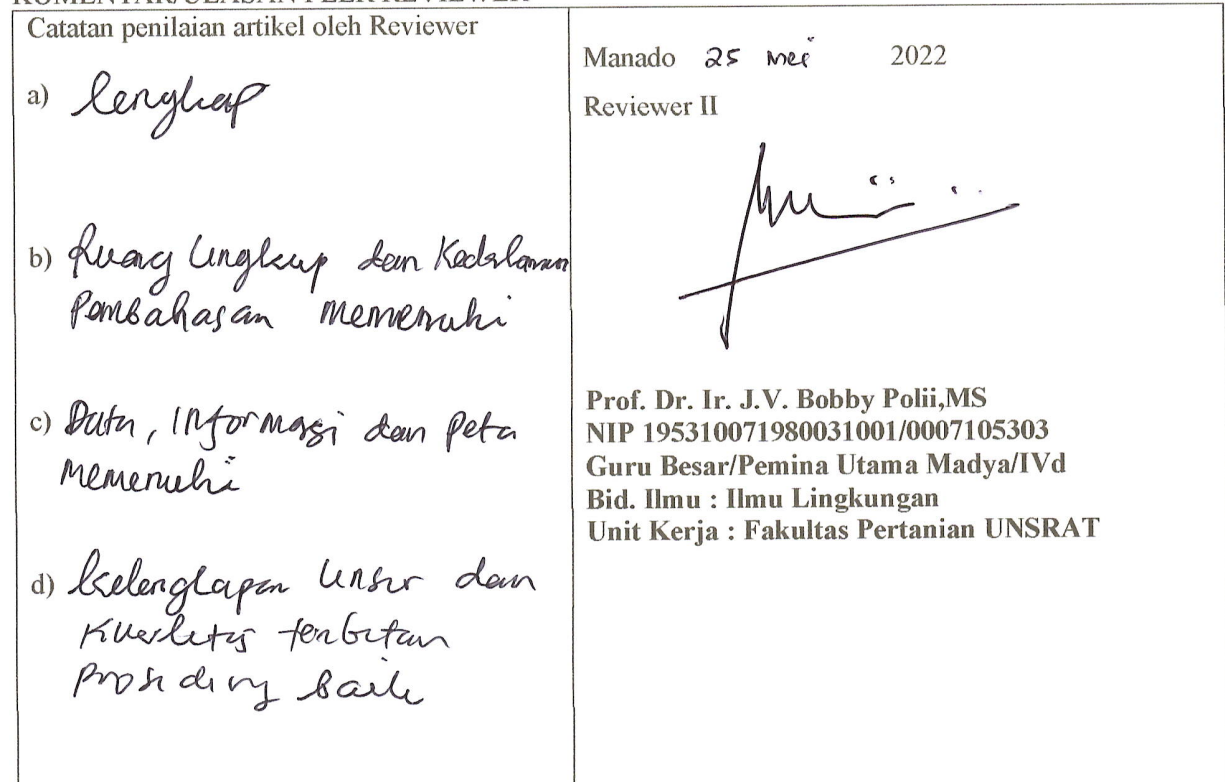 KOMENTAR/ULASAN PEER REVIEWER
Catatan penilaian artikel oleh Reviewer
a) lengkap
b) Ruang lingkup dan Kedalaman
Pembahasan memenuhi
c) Data, Informasi dan Peta
memenuhi
d) Kelengkapan Unsur dan
Kualitas terbitan
Prosiding baik
Manado 25 mei 2022
Reviewer II
Prof. Dr. Ir. J.V. Bobby Polii,MS
NIP 195310071980031001/0007105303
Guru Besar/Pemina Utama Madya/IVd
Bid. Ilmu : Ilmu Lingkungan
Unit Kerja : Fakultas Pertanian UNSRAT